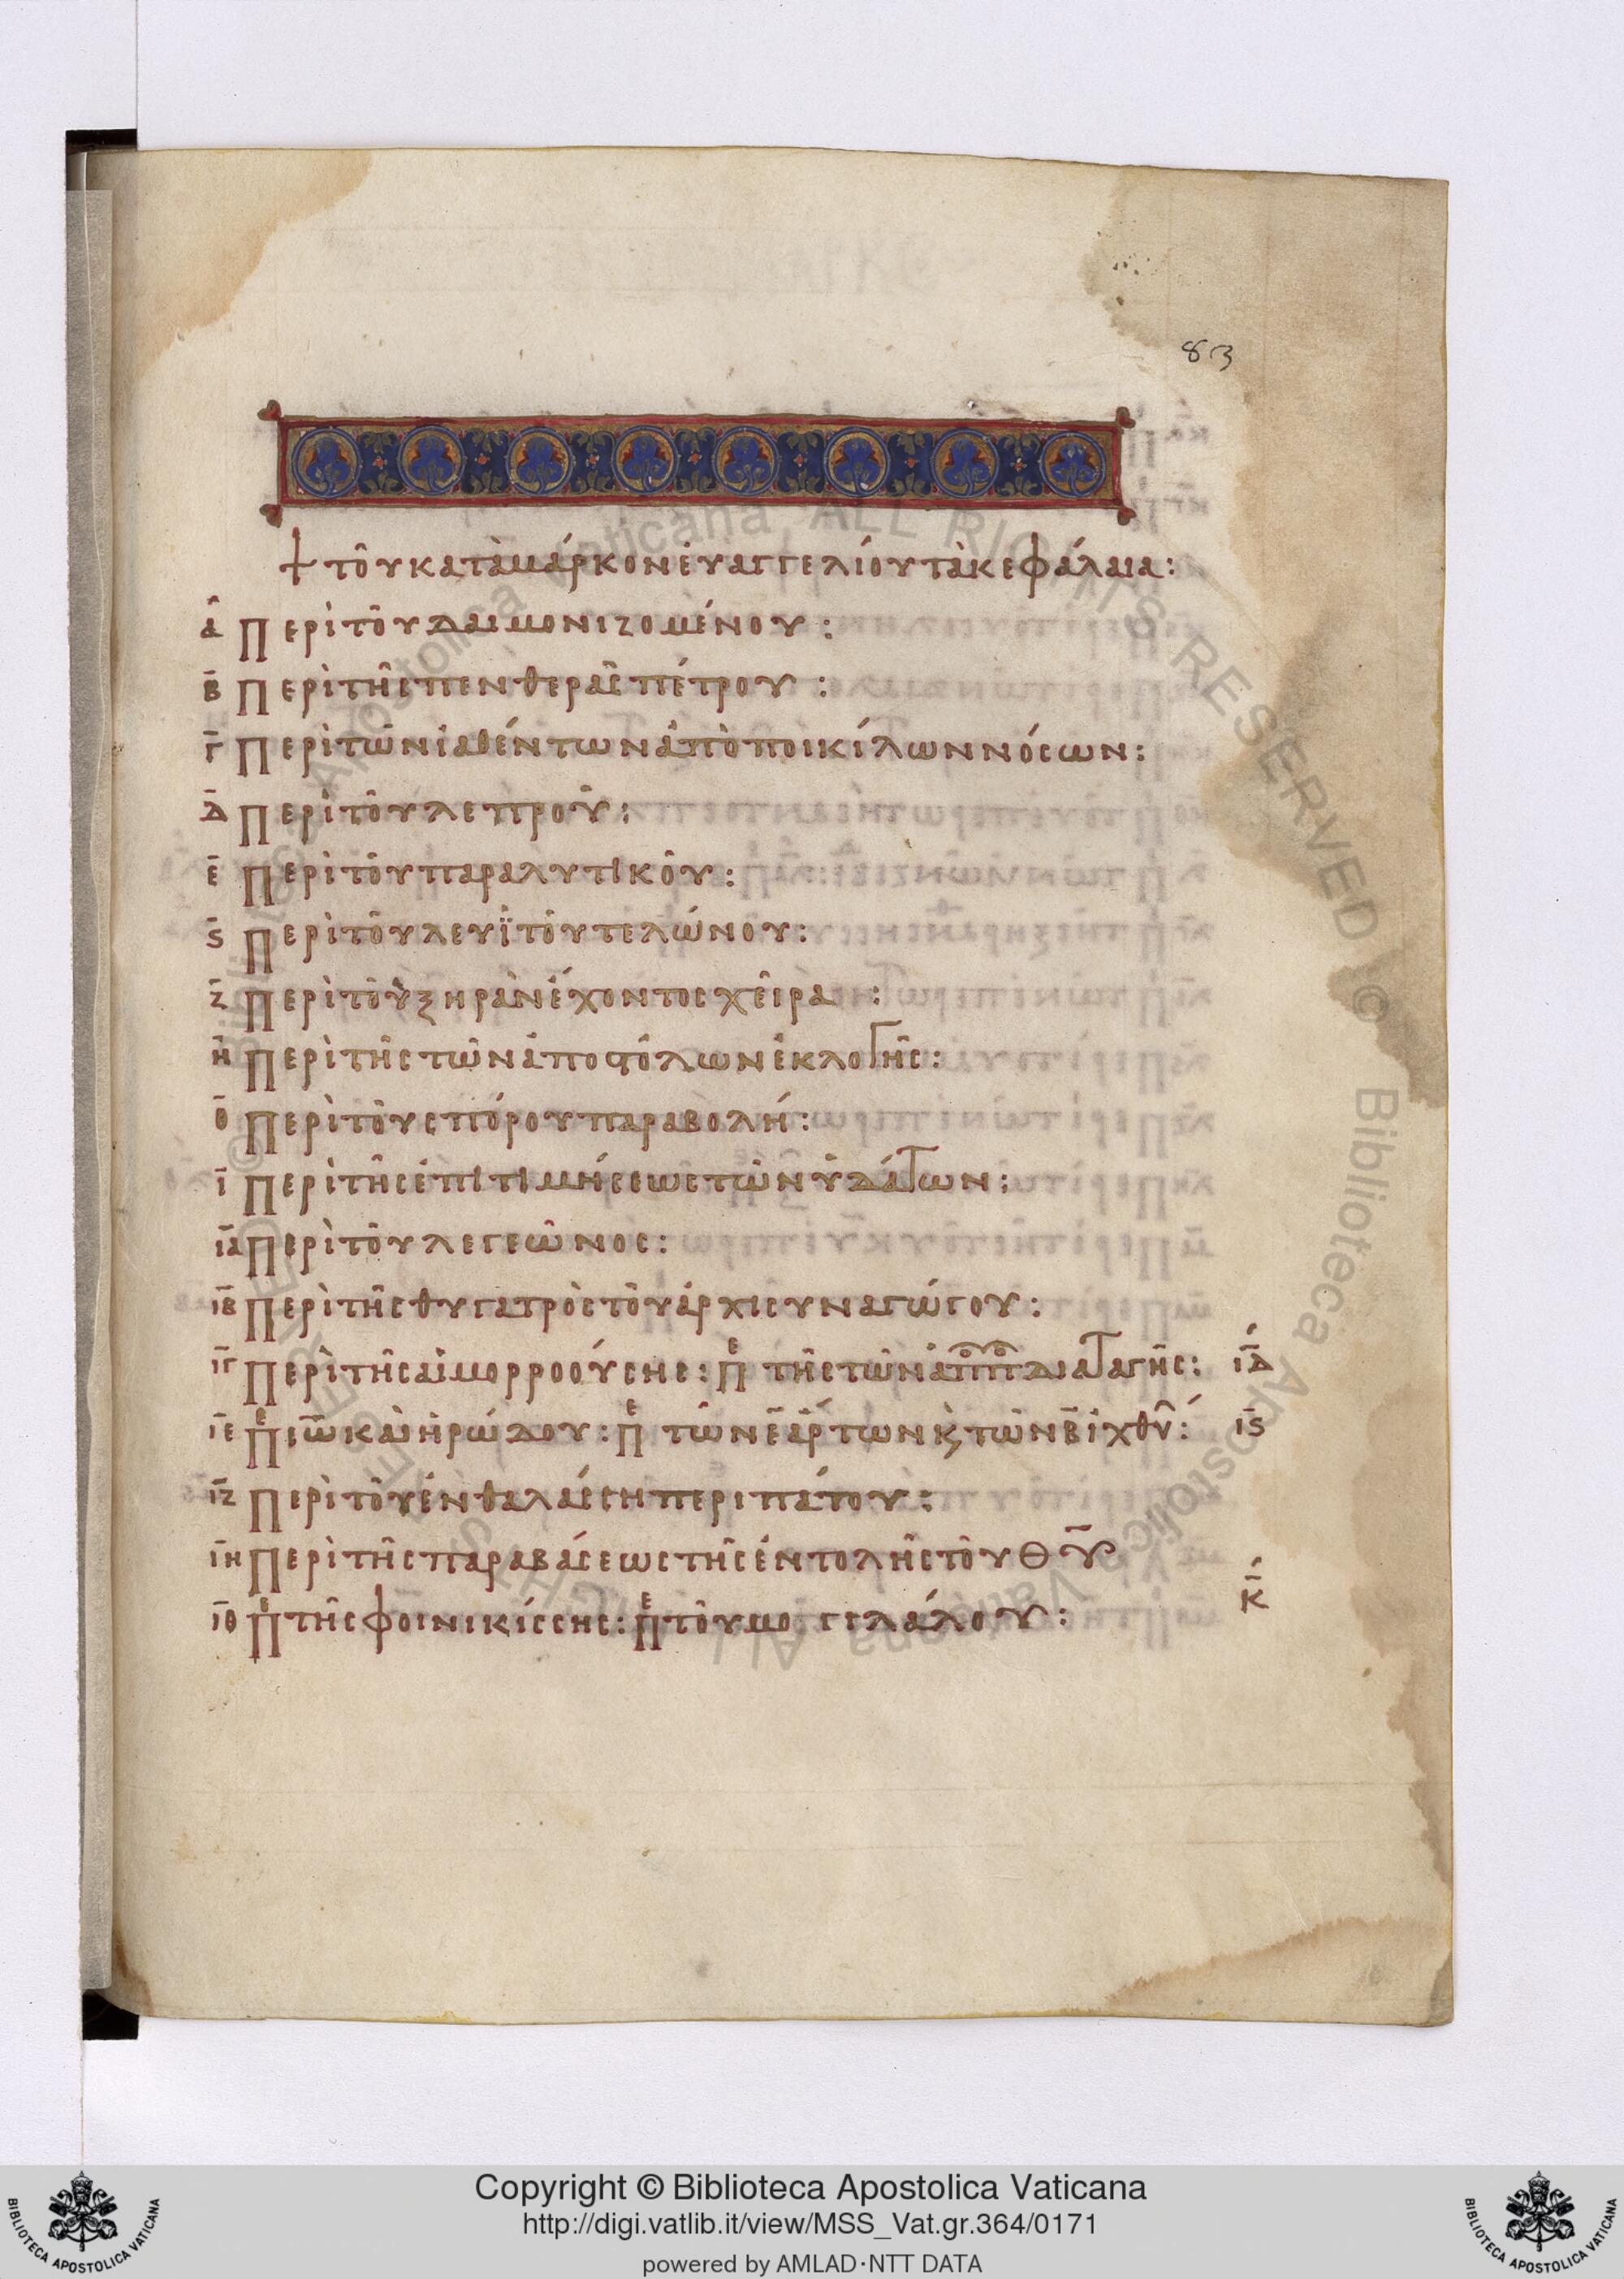 83
+ τοῦ κατὰ μάρκον ἐυαγγελίου τὰ κεφάλαια:
α̅ Περὶ τοῦ δαιμονιζομένου:
β̅ Περὶ τῆς πενθερᾶς πέτρου:
γ̅ Περὶ τῶν ἰαθέντων ἀπὸ ποικίλων νόσων:
δ̅ Περὶ τοῦ λεπροῦ:
ε̅ Περὶ τοῦ παραλυτικοῦ:
ς̅ Περὶ τοῦ λευῒ τοῦ τελώνου:
ζ̅ Περὶ τοῦ ξηρὰν ἔχοντος χεῖρα:
η̅ Περὶ τῆς τῶν ἀποϛόλων ἐκλογῆς:
θ̅ Περὶ τοῦ σπόρου παραβολή:
ι̅ Περὶ τῆς ἐπιτιμήσεως τῶν ὑδάτων:
ια̅ Περὶ τοῦ λεγεῶνος:
ιβ̅ Περὶ τῆς θυγατρὸς τοῦ ἀρχισυναγώγου:
ιγ̅ Περὶ τῆς αἱμορροούσης: Πε τῆς τῶν ἀπππ διαταγῆς: ιδ̅
ιε̅ Πε ιω̅ καὶ ἡρώδου: Πε τῶν ε̅ ἄρτων κ̀ τῶν β̅ ἰχθυ: ις̅
ιζ̅ Περὶ τοῦ ἐν θαλάσση περιπάτου:
ιη̅ Περὶ τῆς παραβάσεως τῆς ἐντολῆς τοῦ θυ̅
ιθ̅ Πε τῆς φοινικίσσης: Πε τοῦ μογγιλάλου: κ̅
Copyright © Biblioteca Apostolica Vaticana
http://digi.vatlib.it/view/MSS_Vat.gr.364/0171
powered by AMLAD·NTT DATA
BIBLIOTECA APOSTOLICA VATICANA
BIBLIOTECA APOSTOLICA VATICANA